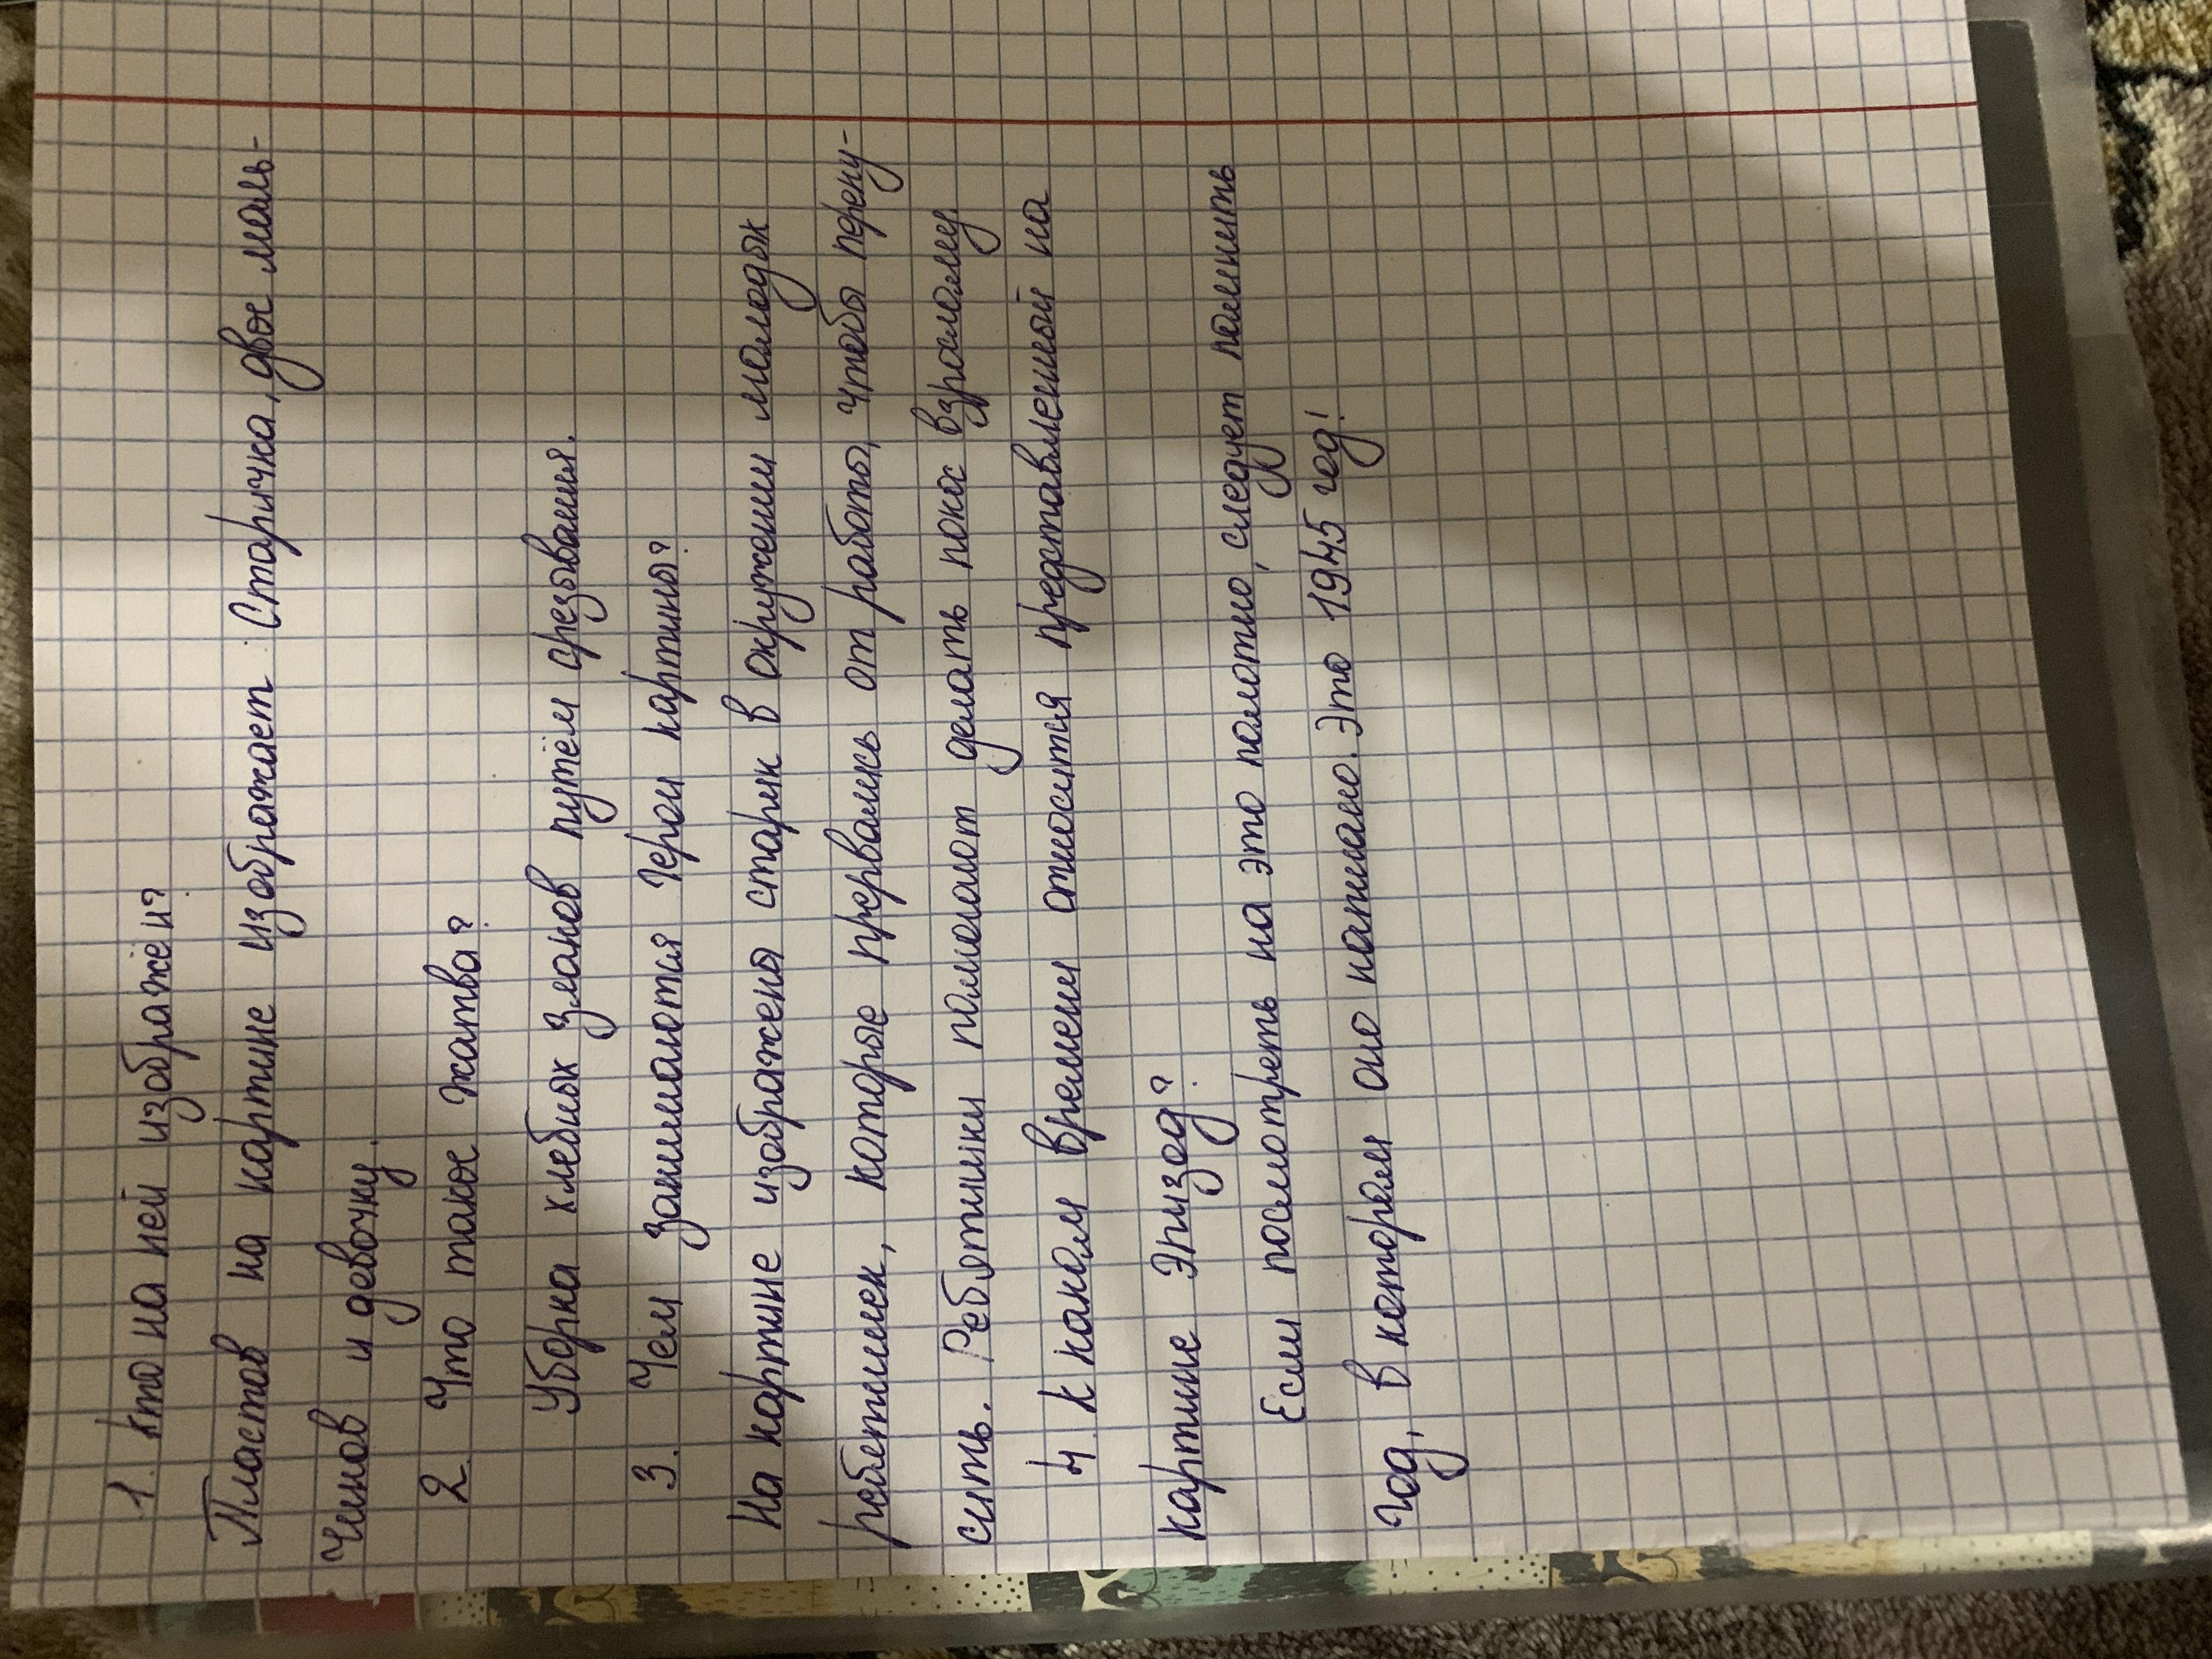 1. Кто на ней изображён?
Пластов на картине изображает Старичка, двое маль-
чиков и девочку.
2. Что такое жатва?
Уборка хлебных злаков путём срезывания.
3. Чем занимаются Герои картины?
На картине изображены старик в окружении молодых
работниек, которые прервались от работы, чтобы переку-
сить. Реботишки помогают делать пока взрослому
4. К каком времени относится представленный на
картине Эпизод?
Если посмотреть на это полотно, следует помнить
Год, в котором оно написано. Это 1945 год!